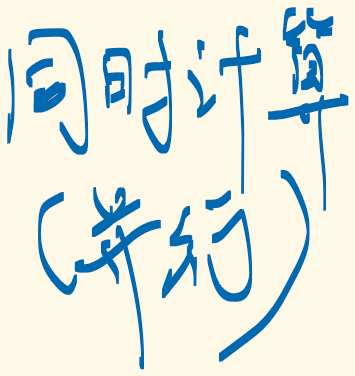 同时计算
(并行)